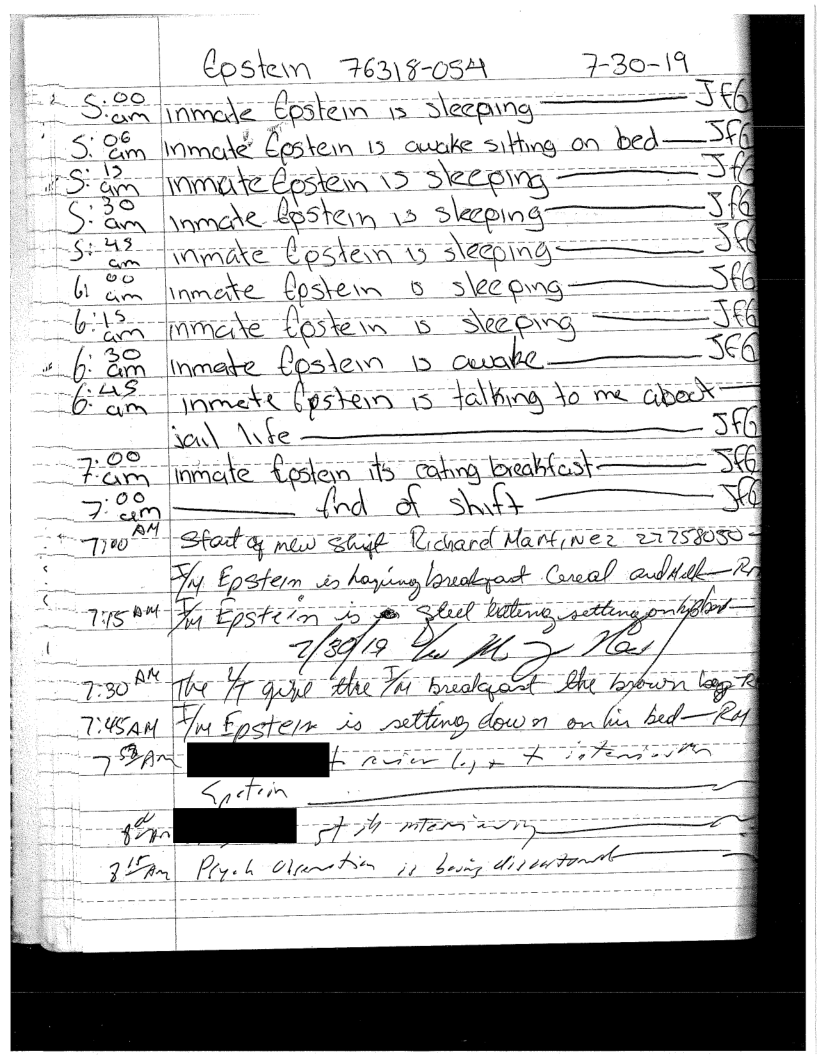 Epstein 76318-054 7-30-19
5:00 am inmate Epstein is sleeping JfG
5:06 am inmate Epstein is awake sitting on bed JfG
5:15 am inmate Epstein is sleeping JfG
5:30 am inmate Epstein is sleeping JfG
5:45 am inmate Epstein is sleeping JfG
6:00 am inmate Epstein is sleeping JfG
6:15 am inmate Epstein is sleeping JfG
6:30 am inmate Epstein is awake JfG
6:45 am inmate Epstein is talking to me about
jail life JfG
7:00 am inmate Epstein its eating breakfast JfG
7:00 am End of shift JfG
7:00 AM Start of new shift Richard Martinez 27758050
I/M Epstein is having breakfast Cereal and Milk RM
7:15 AM I/M Epstein is steel setting on his bed
7/30/19
7:30 AM The I/M breakfast the brown bag R
7:45 AM I/M Epstein is setting down on his bed RM
AM review log
Epstein
AM interviewing
8 15 AM Psych Observation is being